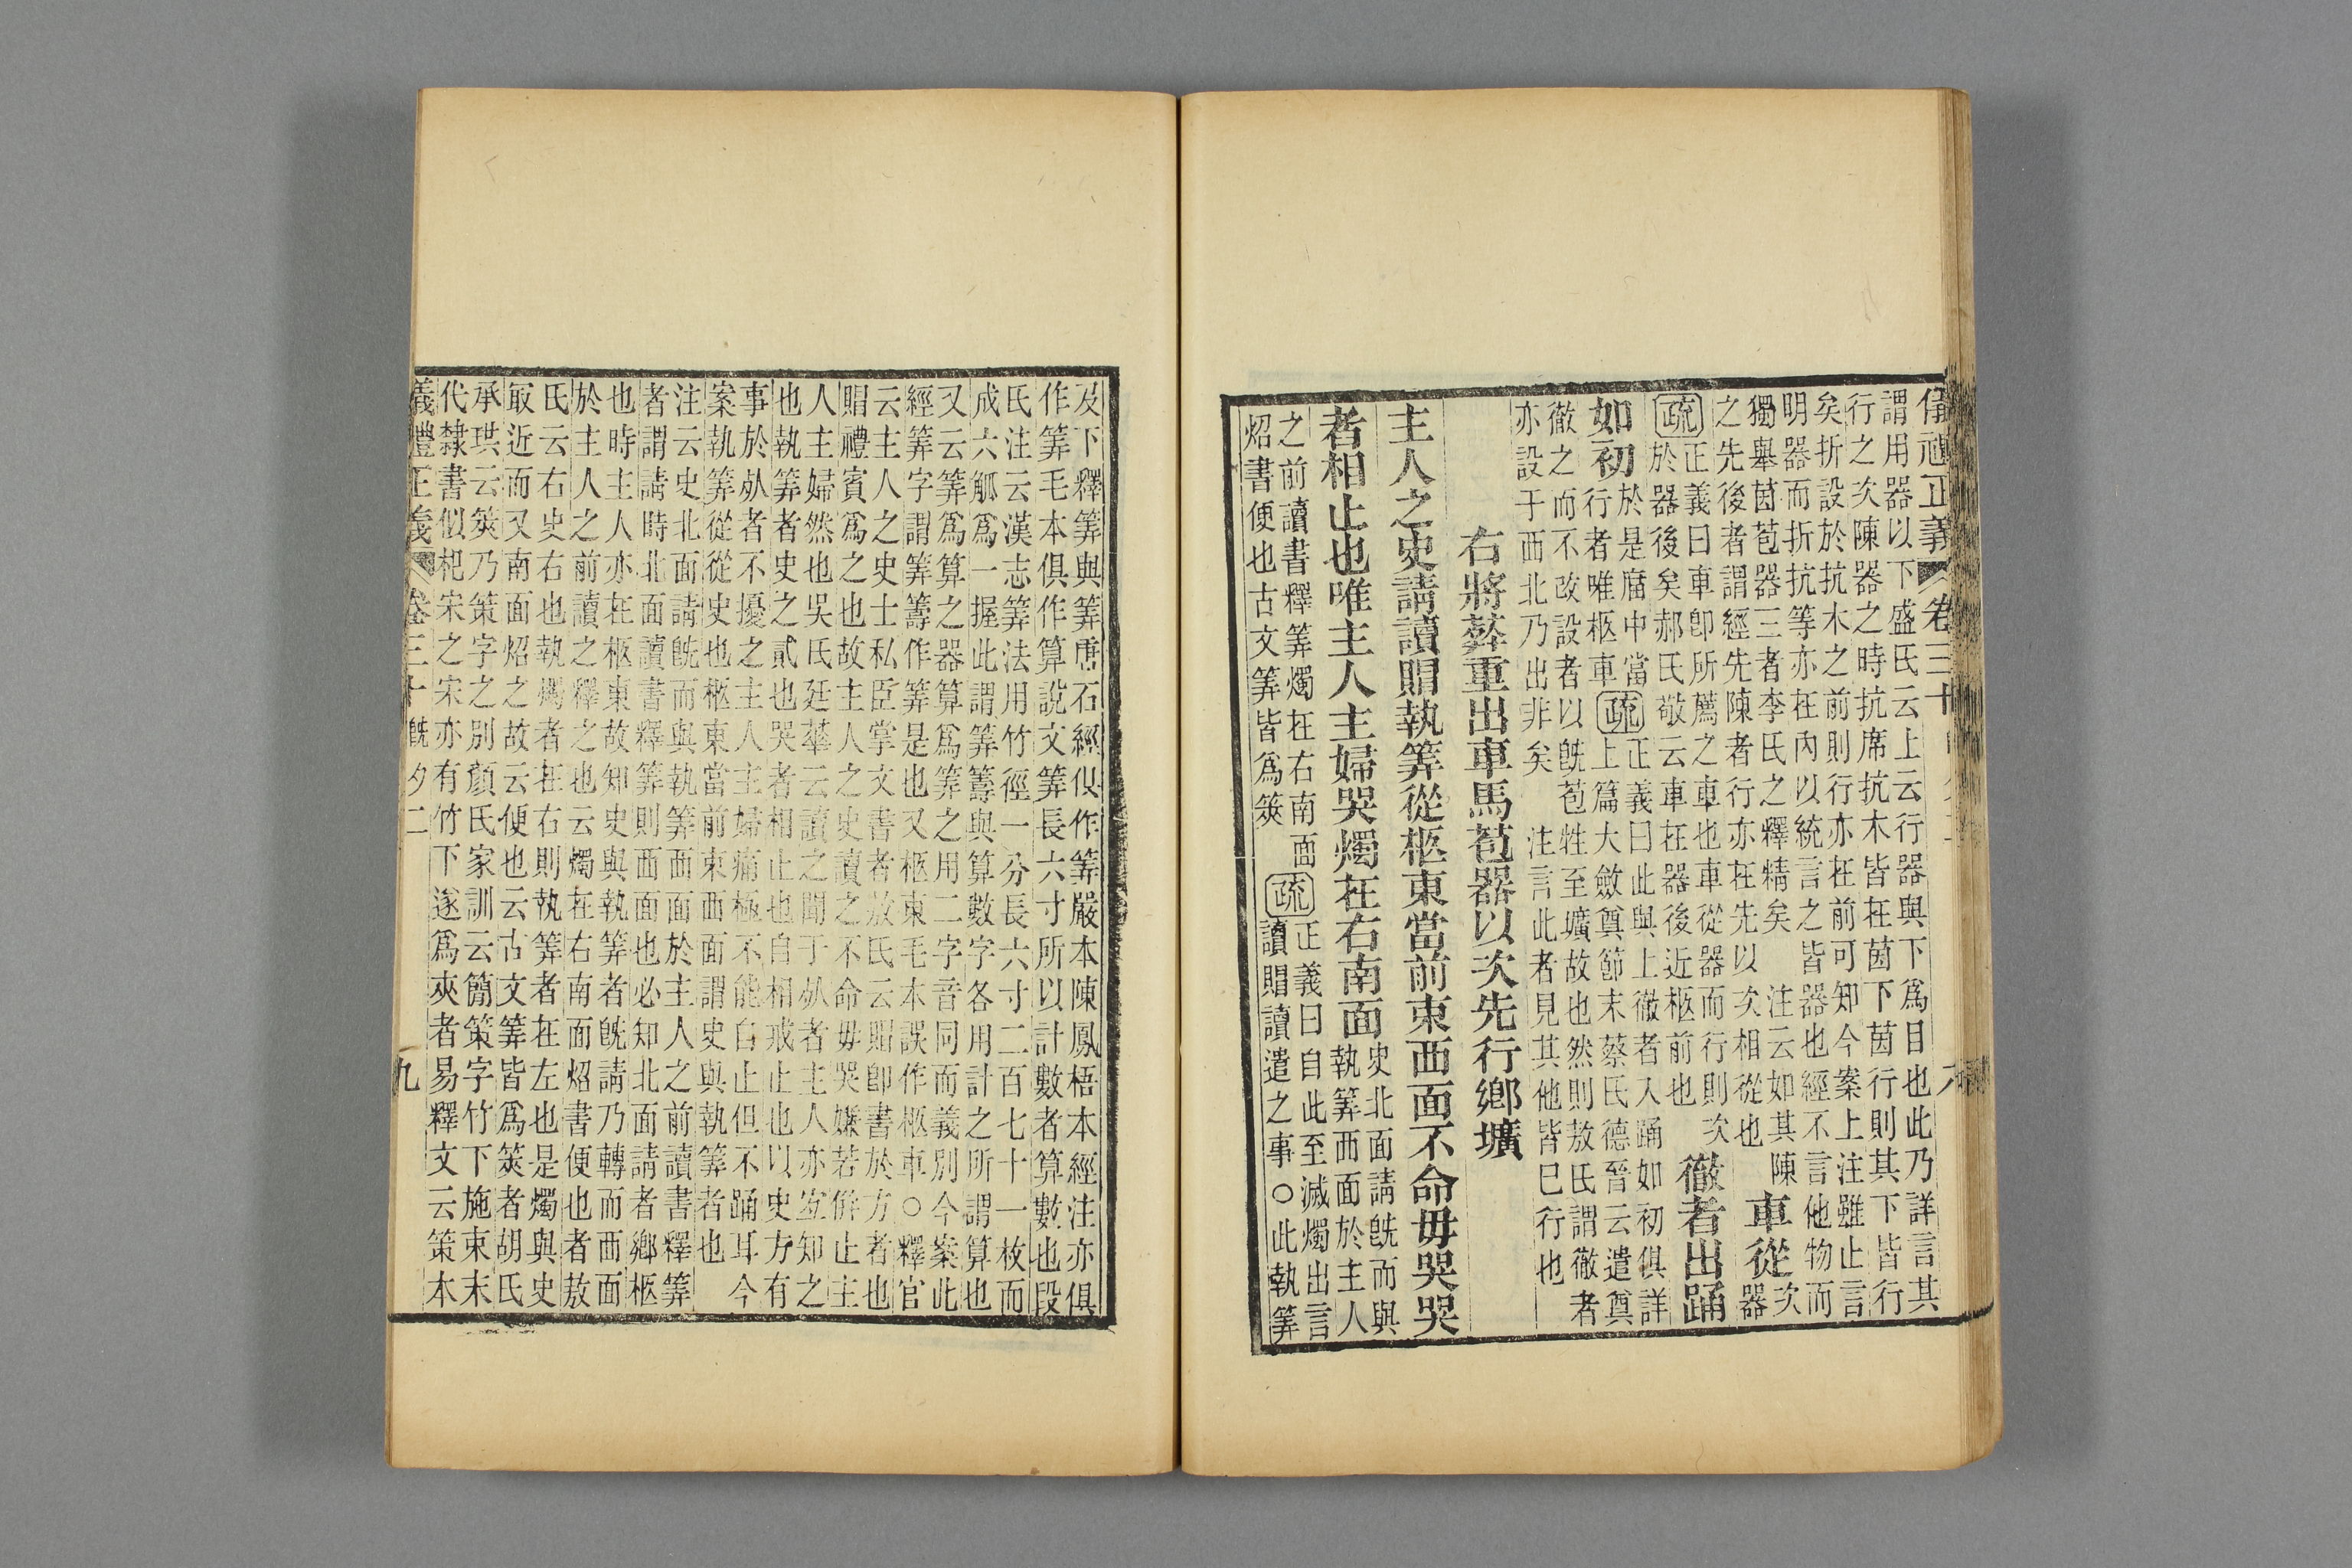 謂用器以下盛氏云上云行器與下爲目也此乃詳言其
行之次陳器之時抗席抗木皆在茵下茵行則其下皆行
矣折設於抗木之前則行亦在前可知今案上注雖止言
明器而折抗等亦在內以統言之皆器也經不言他物而
獨舉茵苞器三者李氏之釋精矣　注云如其陳　車從次
之先後者謂經先陳者行亦在先以次相從也　器
疏正義曰車卽所薦之車也車從器而行則次
於器後矣郝氏敬云車在器後近柩前也
徹者出踊
如初於是廟中當
行者唯柩車疏正義曰此與上徹者入踊如初俱詳
上篇大斂奠節末蔡氏德晉云遣奠
徹之而不改設者以旣苞牲至壙故也然則敖氏謂徹者
亦設于西北乃出非矣　注言此者見其他皆已行也
右將葬重出車馬苞器以次先行鄉壙
主人之史請讀賵執筭從柩東當前東西面不命毋哭哭
者相止也唯主人主婦哭燭在右南面史北面請旣而與
執筭西面於主人
之前讀書釋筭燭在右南面
炤書便也古文筭皆爲筴疏正義曰自此至滅燭出言
讀賵讀遣之事○此執筭
及下釋筭與筭唐石經似作筭嚴本陳鳳梧本經注亦俱
作筭毛本俱作算說文筭長六寸所以計數者算數也段
氏注云漢志筭法用竹徑一分長六寸二百七十一枚而
成六觚爲一握此謂筭籌與算數字各用計之所謂算也
又云筭爲算之器算爲筭之用二字音同而義別今案此
經筭字謂筭籌作筭是也又柩東毛本誤作柩車○釋官
云主人之史士私臣掌文書者敖氏云賵卽書於方者也
賵禮賓爲之也故主人之史讀之不命毋哭嫌若倂止主
人主婦然也吳氏廷華云讀之聞于㱃者主人亦宜知之
也執筭者史之貳也哭者相止也自相戒止也以史方有
事於㱃者不擾之主人主婦痛極不能自止但不踊耳今
案執筭從從史也柩東當前東西面謂史與執筭者也
注云史北面請旣而與執筭西面於主人之前讀書釋筭
者謂請時北面讀書釋筭則西面也必知北面請者鄉柩
也時主人亦在柩東故知史與執筭者旣請乃轉而西面
於主人之前讀之釋之也云燭在右南面炤書便也者敖
氏云右史右也執燭者在右則執筭者在左也是燭與史
取近而又南面炤之故云便也云古文筭皆爲筴者胡氏
承珙云筴乃策字之別顏氏家訓云簡策字竹下施朿末
代隸書似杞宋之宋亦有竹下遂爲夾者易釋文云策本
儀禮正義　卷三十　旣夕二　九